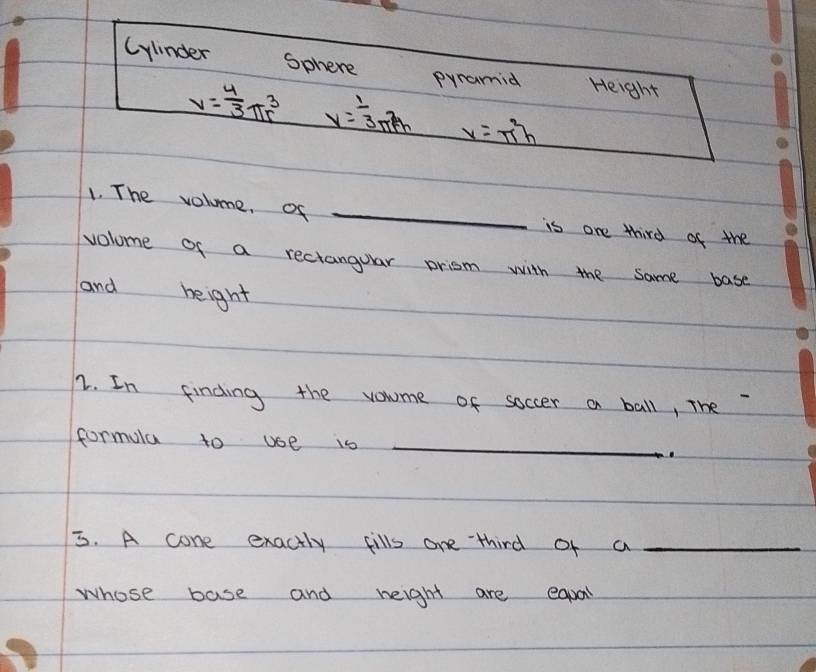 Cylinder Sphere pyramid Height
V = 4/3 πr³ V = 1/3 πr²h V = π²h
1. The volume. of ________ is one third of the
volume of a rectangular prism with the same base
and height
2. In finding the volume of soccer a ball, The -
formula to use is ________.
3. A cone exactly fills one-third of a ________
whose base and height are equal